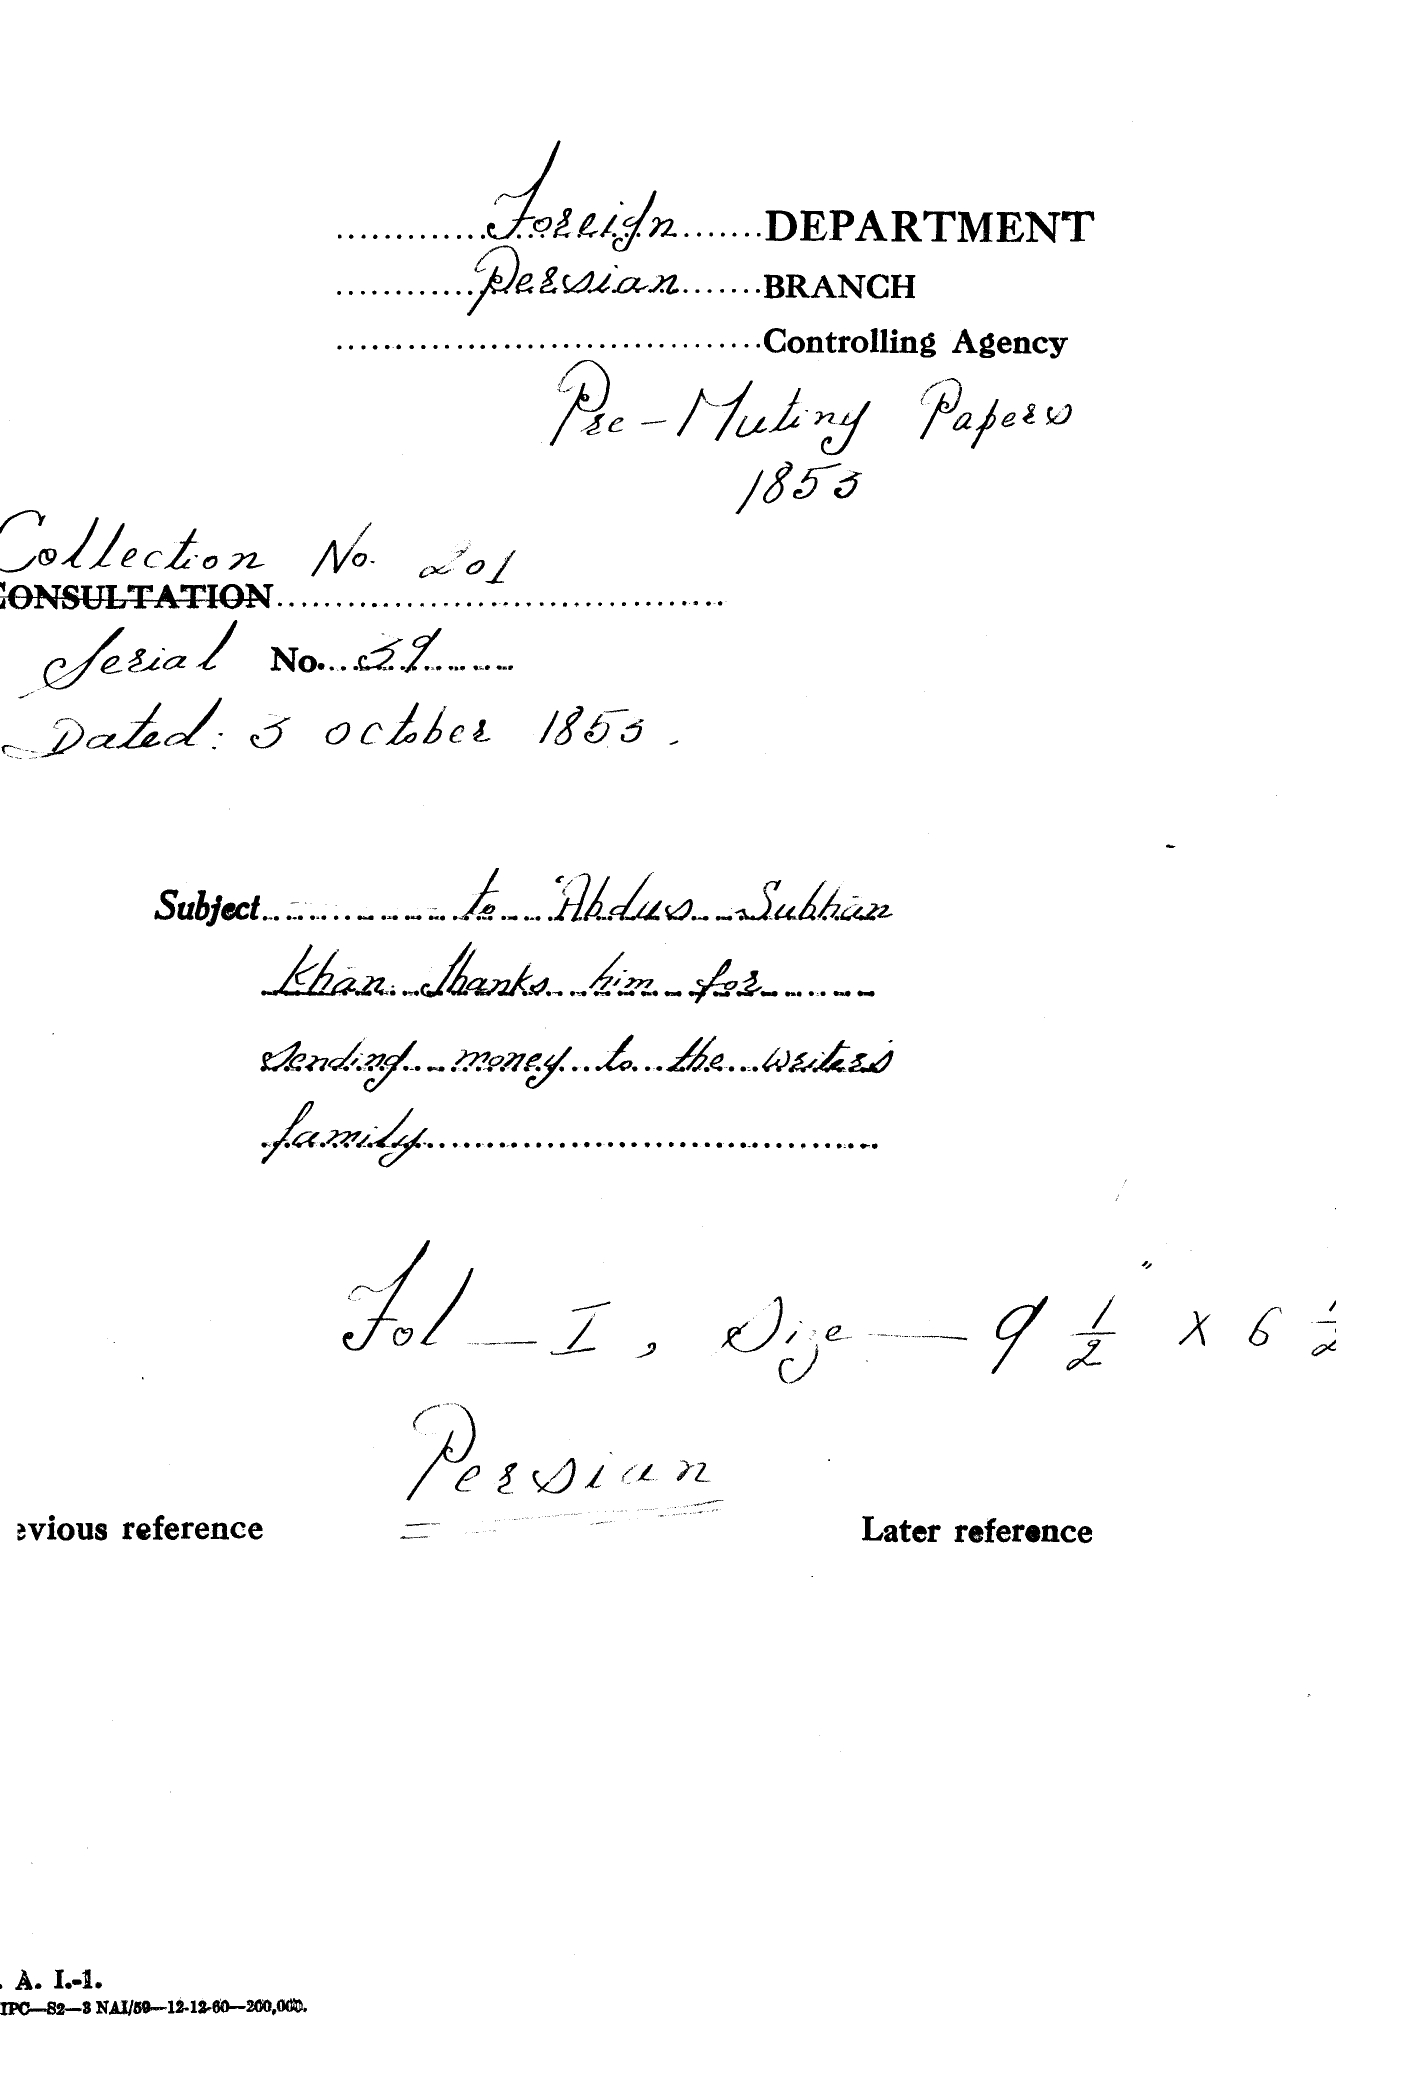 Foreign DEPARTMENT
Persian BRANCH
Controlling Agency
Pre-Mutiny Papers
1853
Collection No. 201
CONSULTATION
Serial No. 39
Dated: 3 October 1853.
Subject to 'Abdus Subhān
Khān. Thanks him for
sending money to the writers
family
Fol — I, Size — 9 1/2" X 6 1/2
Persian
evious reference Later reference
. A. I.-1.
IPC—S2—3 NAI/59—12-12-60—200,000.